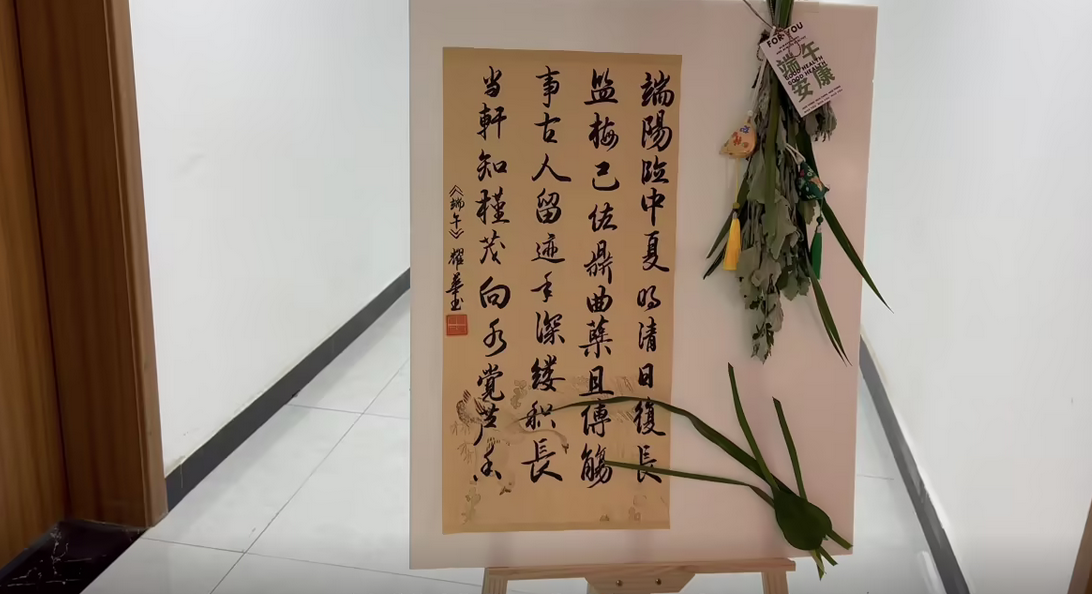 端陽临中夏时清日復長
盐梅已佐鼎曲蘖且傳觴
事古人留迹年深缕积長
当軒知槿茂向水觉芦香
《端午》耀華书
FOR YOU
端午
GOOD HEALTH
GOOD HEALTH
安康